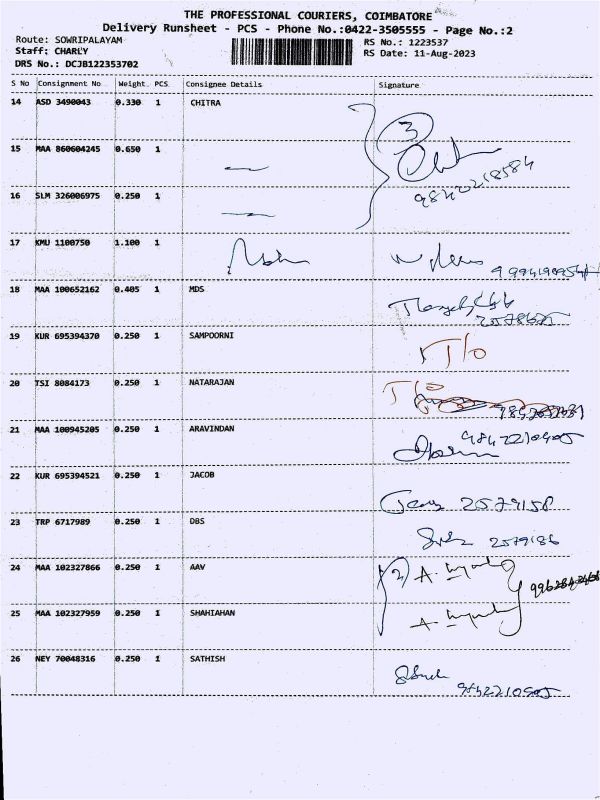 THE PROFESSIONAL COURIERS, COIMBATORE
Delivery Runsheet - PCS - Phone No.:0422-3505555 - Page No.:2
Route: SOWRIPALAYAM RS No.: 1223537
Staff: CHARLY RS Date: 11-Aug-2023
DRS No.: DCJB122353702
S No Consignment No Weight PCS Consignee Details Signature
14 ASD 3490043 0.330 1 CHITRA
3
15 MAA 860604245 0.650 1
98420218584
16 SLM 326006975 0.250 1
17 KMU 1100750 1.100 1
18 MAA 100652162 0.405 1 MDS
19 KUR 695394370 0.250 1 SAMPOORNI
T/o
20 TSI 8084173 0.250 1 NATARAJAN T/o
21 MAA 100945205 0.250 1 ARAVINDAN 9842210905
22 KUR 695394521 0.250 1 JACOB
2579158
23 TRP 6717989 0.250 1 DBS
2579186
24 MAA 102327866 0.250 1 AAV 2
25 MAA 102327959 0.250 1 SHAHIAHAN
26 NEY 70048316 0.250 1 SATHISH
9842210905